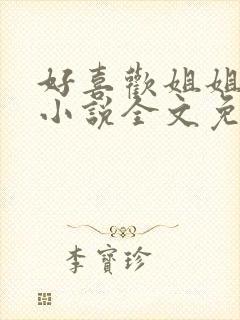 好喜歡姐姐
小說全文免
李寶珍